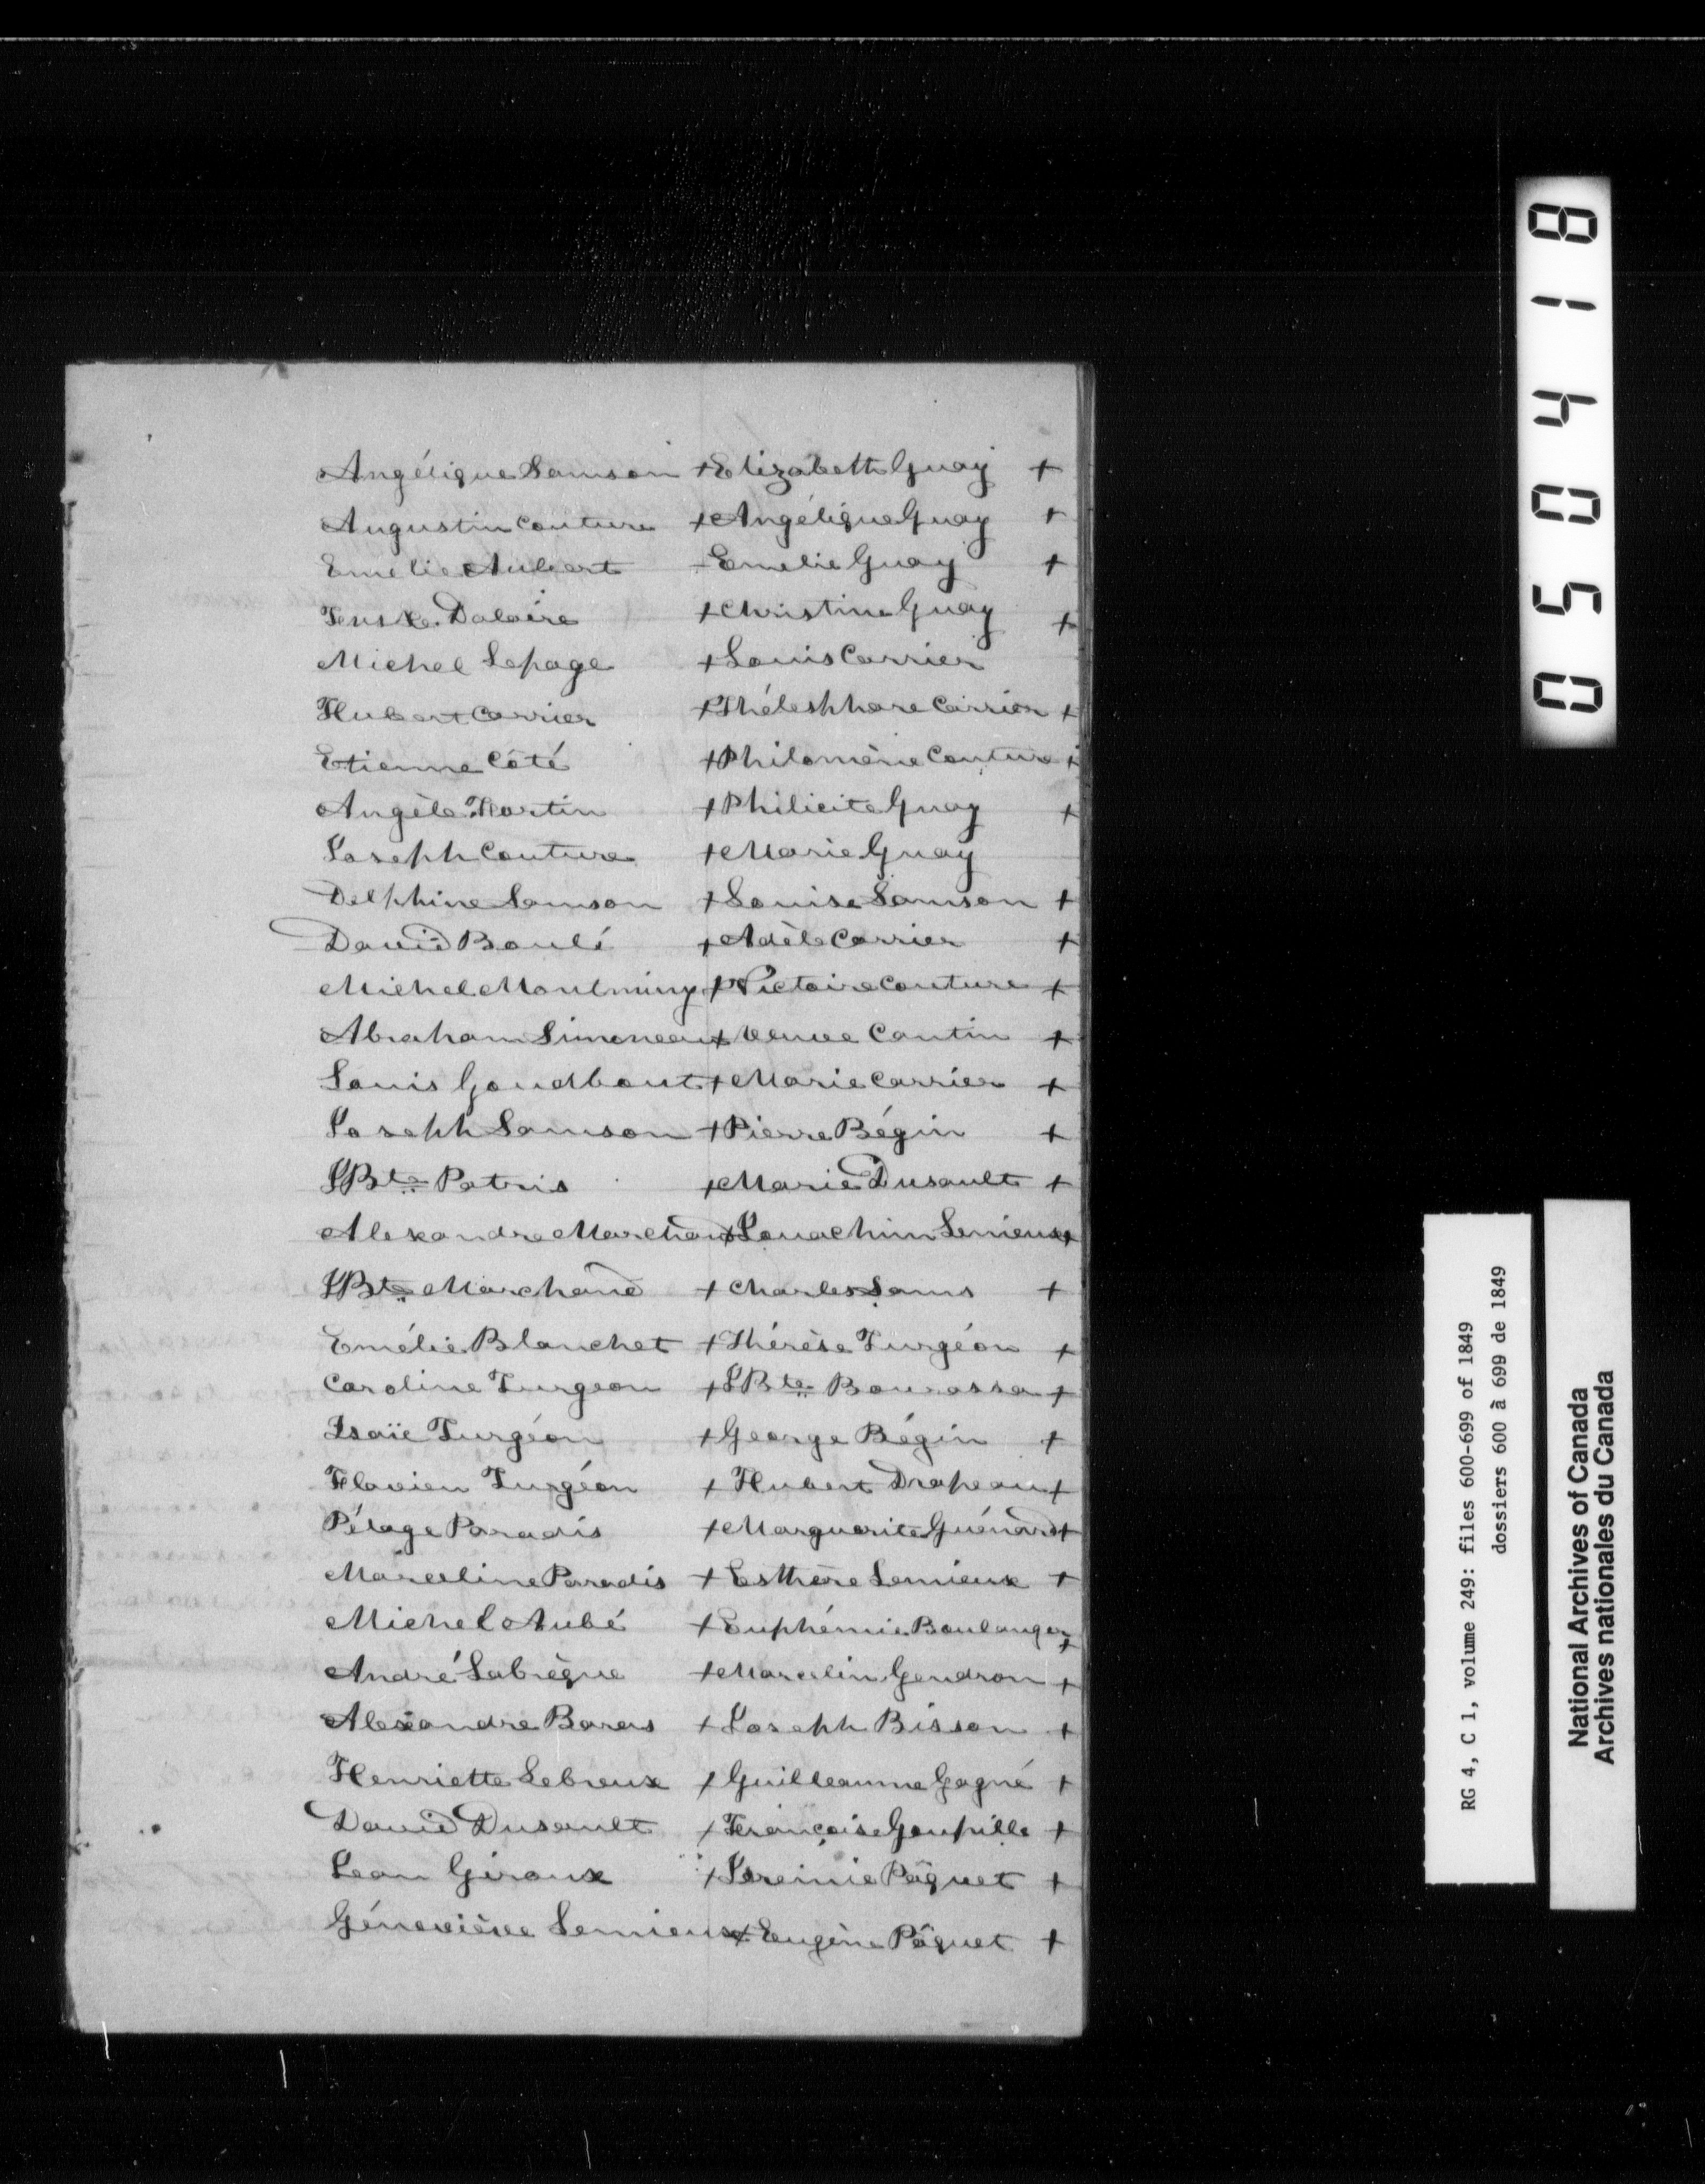 Angélique Samson + Elizabeth Guay +
Augustin Couture + Angélique Guay +
Emélie Aubert + Emelie Guay +
Dalaire + Christine Guay +
Michel Lepage + Louis Carrier
Hubert Carrier + Théleshhore Carrier +
Etienne Côté + Philomène Couture +
Angèle Martin + Philicite Guay +
Joseph Couture + Marie Guay
Delphine Samson + Louise Samson +
David Boulé + Adèle Carrier +
Michel Montminy + Victoire Couture +
Abraham Simoneau + Veuve Cantin +
Louis Goudbout + Marie Carrier +
Joseph Samson + Pierre Bégin +
J Bte Patris + Marie Dusault +
Alexandre Marchand + Jouachim Lemieux +
J Bte Marchand + Charles +
Emélie Blanchet + Thérèse Turgéon +
Caroline Turgeon + J Bte Bourassa +
Isaïe Turgéon + George Bégin +
Flavien Turgéon + Hubert Drapeau +
Pélage Paradis + Marguerite Guénard +
Marceline Paradis + Esthère Lemieux +
Michel Aubé + Euphémie Boulanger +
André Labrègue + Marcelin Gendron +
Alexandre Baras + Joseph Bisson +
Henriette Lebreux + Guilleaume Gagné +
David Dusault + Françoise Goupille +
Jean Giroux + Jéreimie Pâquet +
Génevième Lemieux + Eugène Pâquet +
050418
RG 4, C 1, volume 249: files 600-699 of 1849
dossiers 600 à 699 de 1849
National Archives of Canada
Archives nationales du Canada